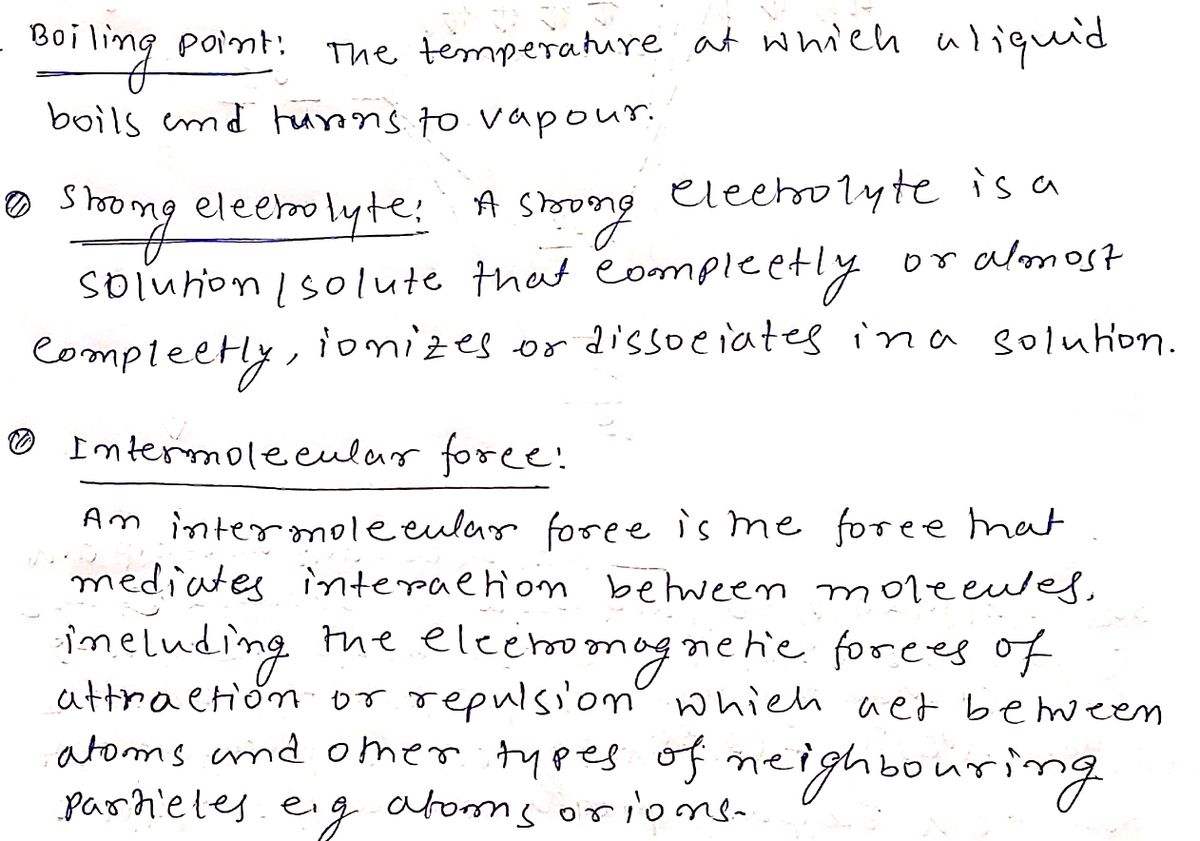 Boiling point: The temperature at which a liquid
boils and turns to vapour.
Strong electrolyte: A strong electrolyte is a
solution / solute that completly or almost
completly, ionizes or dissociates in a solution.
Intermolecular force:
An intermolecular force is the force that
mediates interaction between molecules,
including the electromagnetic forces of
attraction or repulsion which act between
atoms and other types of neighbouring
particles e.g atoms or ions.